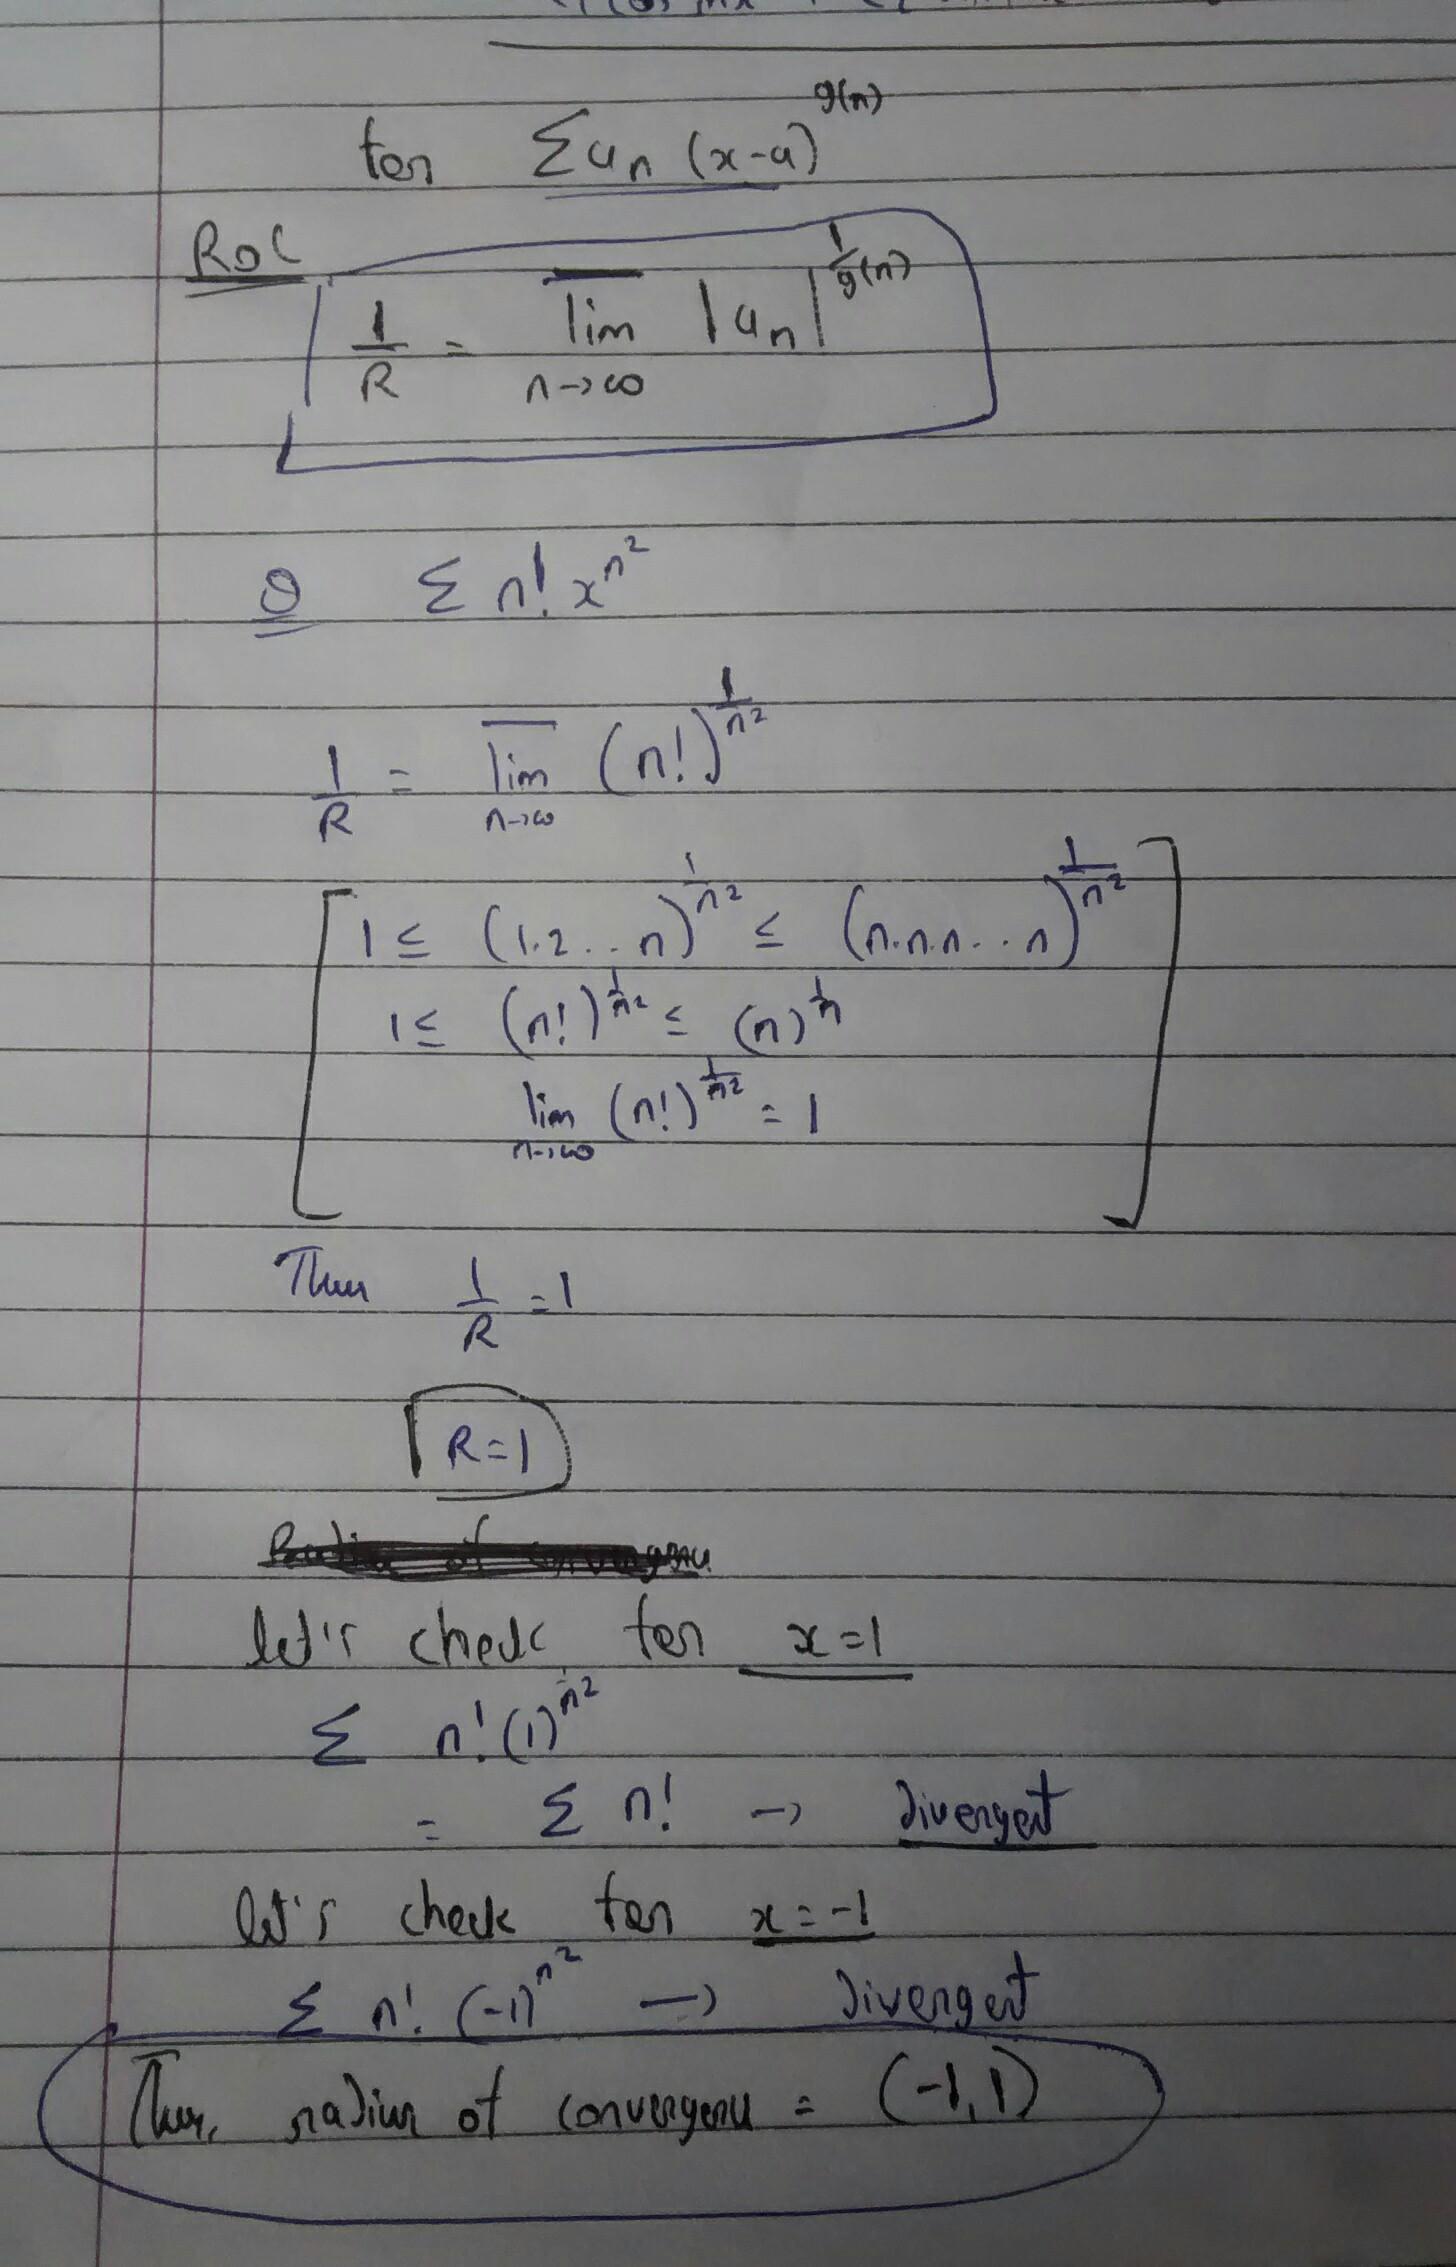 for Σ aₙ (x-a)^g(n)
ROC
1/R = lim‾ n→∞ |aₙ|^(1/g(n))
Q Σ n! x^n²
1/R = lim‾ n→∞ (n!)^(1/n²)
1 ≤ (1.2...n)^(1/n²) ≤ (n.n.n...n)^(1/n²)
1 ≤ (n!)^(1/n²) ≤ (n)^(1/n)
lim n→∞ (n!)^(1/n²) = 1
Thus 1/R = 1
R=1
let's check for x=1
Σ n! (1)^n²
= Σ n! → divergent
let's check for x=-1
Σ n! (-1)^n² → Divergent
Thus, radius of convergence = (-1,1)